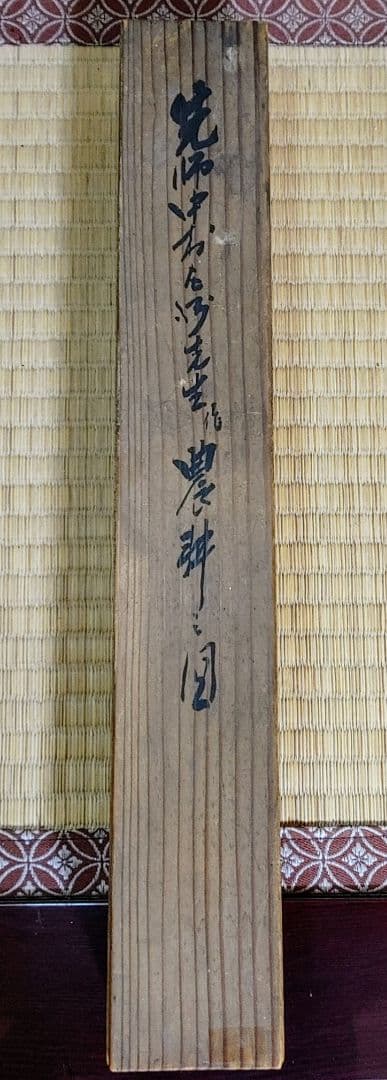 先師中村左洲先生作農耕之図